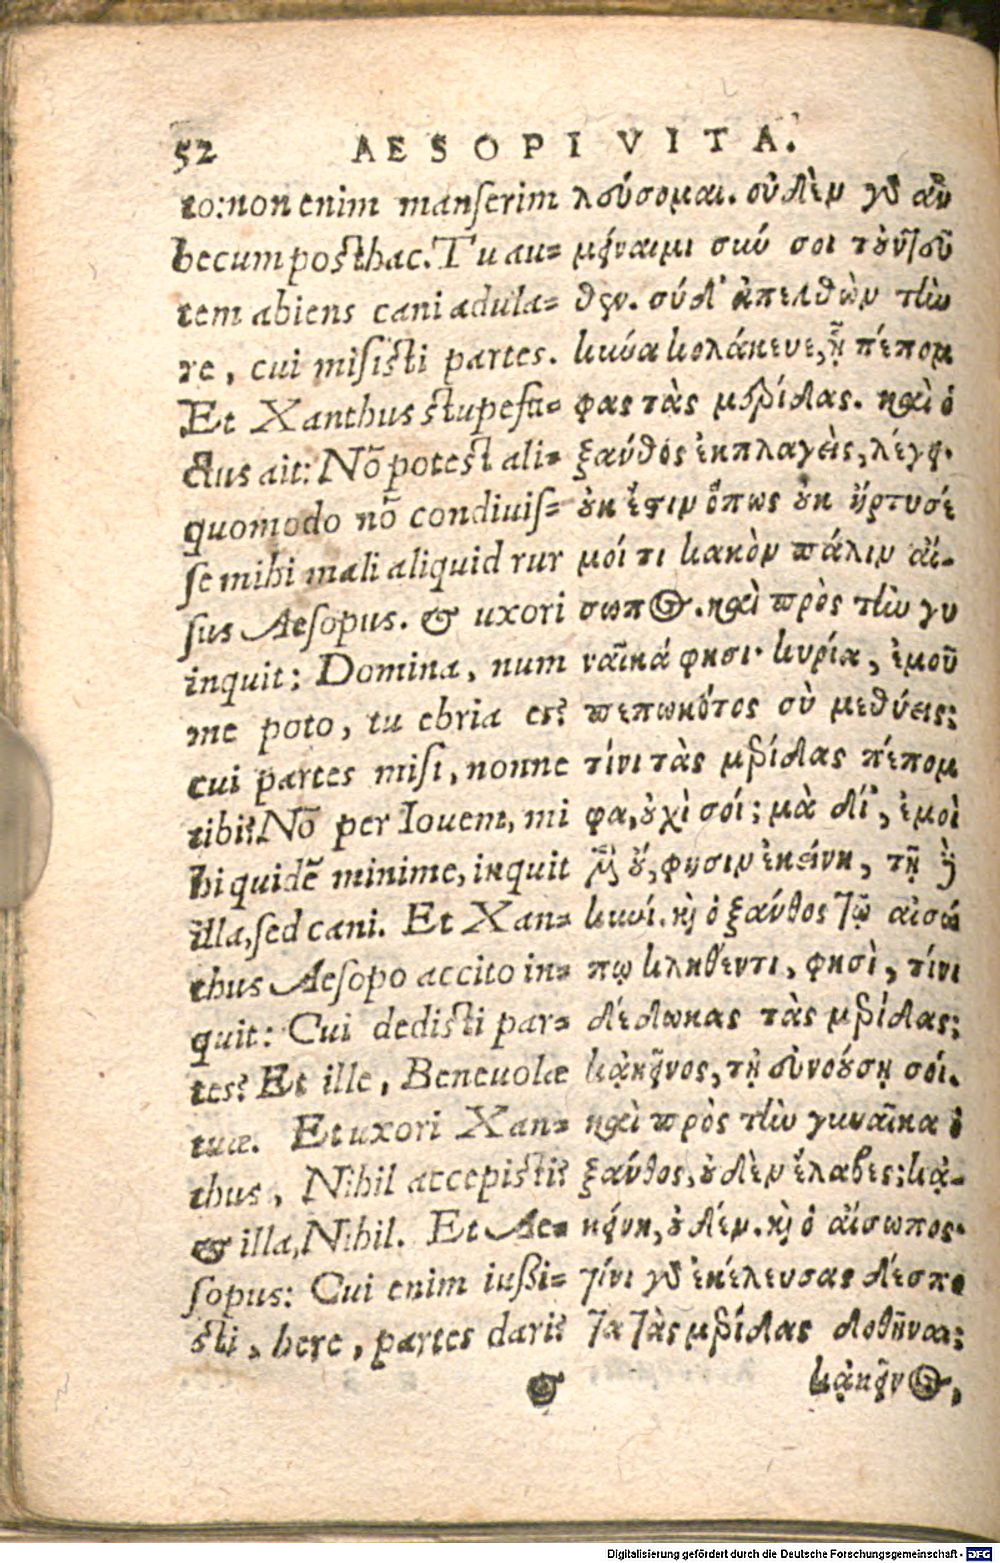 52 AESOPI VITA.
to: non enim manserim
becum posthac. Tu au=
tem abiens cani adula=
re, cui misisti partes.
Et Xanthus stupefa=
ctus ait: Nō potest ali=
quomodo nō condiuis=
se mihi mali aliquid rur
sus Aesopus. & uxori
inquit: Domina, num
me poto, tu ebria es?
cui partes misi, nonne
tibi? Nō per Iouem, mi
hi quidē minime, inquit
illa, sed cani. Et Xan=
thus Aesopo accito in=
quit: Cui dedisti par=
tes? Et ille, Beneuolæ
tuæ. Et uxori Xan=
thus, Nihil accepisti?
& illa, Nihil. Et Ae=
sopus: Cui enim iussi=
sti, here, partes dari?
&
λούσομαι. οὐδὲν γὸ ἂν
μείναιμι σιωύ σοι τοὐντεῦ
θεν. σύ δ' ἀπελθὼν τὴν
κύνα κολάκευε, ᾗ πέπομ
φας τὰς μερίδας. καὶ ὁ
ξαύθος ἐκπλαγεὶς, λέγει·
οὐκ ἔστιν ὅπως οὐκ ἤρτυσέ
μοί τι κακὸν πάλιν αἴ-
σωπος. καὶ πρὸς τὴν γυ
ναῖκά φησι· κυρία, ἐμοῦ
πεπωκότος σὺ μεθύεις;
τίνι τὰς μερίδας πέπομ
φα, οὐχὶ σοί; μὰ δί', ἐμοὶ
μὲν οὔ, φησιν ἐκείνη, τῇ δὲ
κυνί. κὶ ὁ ξαύθος τῷ αἰσώ
πῳ κληθέντι, φησὶ, τίνι
δέδωκας τὰς μερίδας;
κἀκεῖνος, τῇ εὐνοούσῃ σοί.
καὶ πρὸς τὴν γυναῖκα ὁ
ξαύθος, οὐδὲν ἔλαβες; κἀ-
κείνη, οὐδέν. κὶ ὁ αἴσωπος·
τίνι γὸ ἐκέλευσας δέσπο
τα τὰς μερίδας δοθῆναι;
κἀκεῖνος,
Digitalisierung gefördert durch die Deutsche Forschungsgemeinschaft - DFG